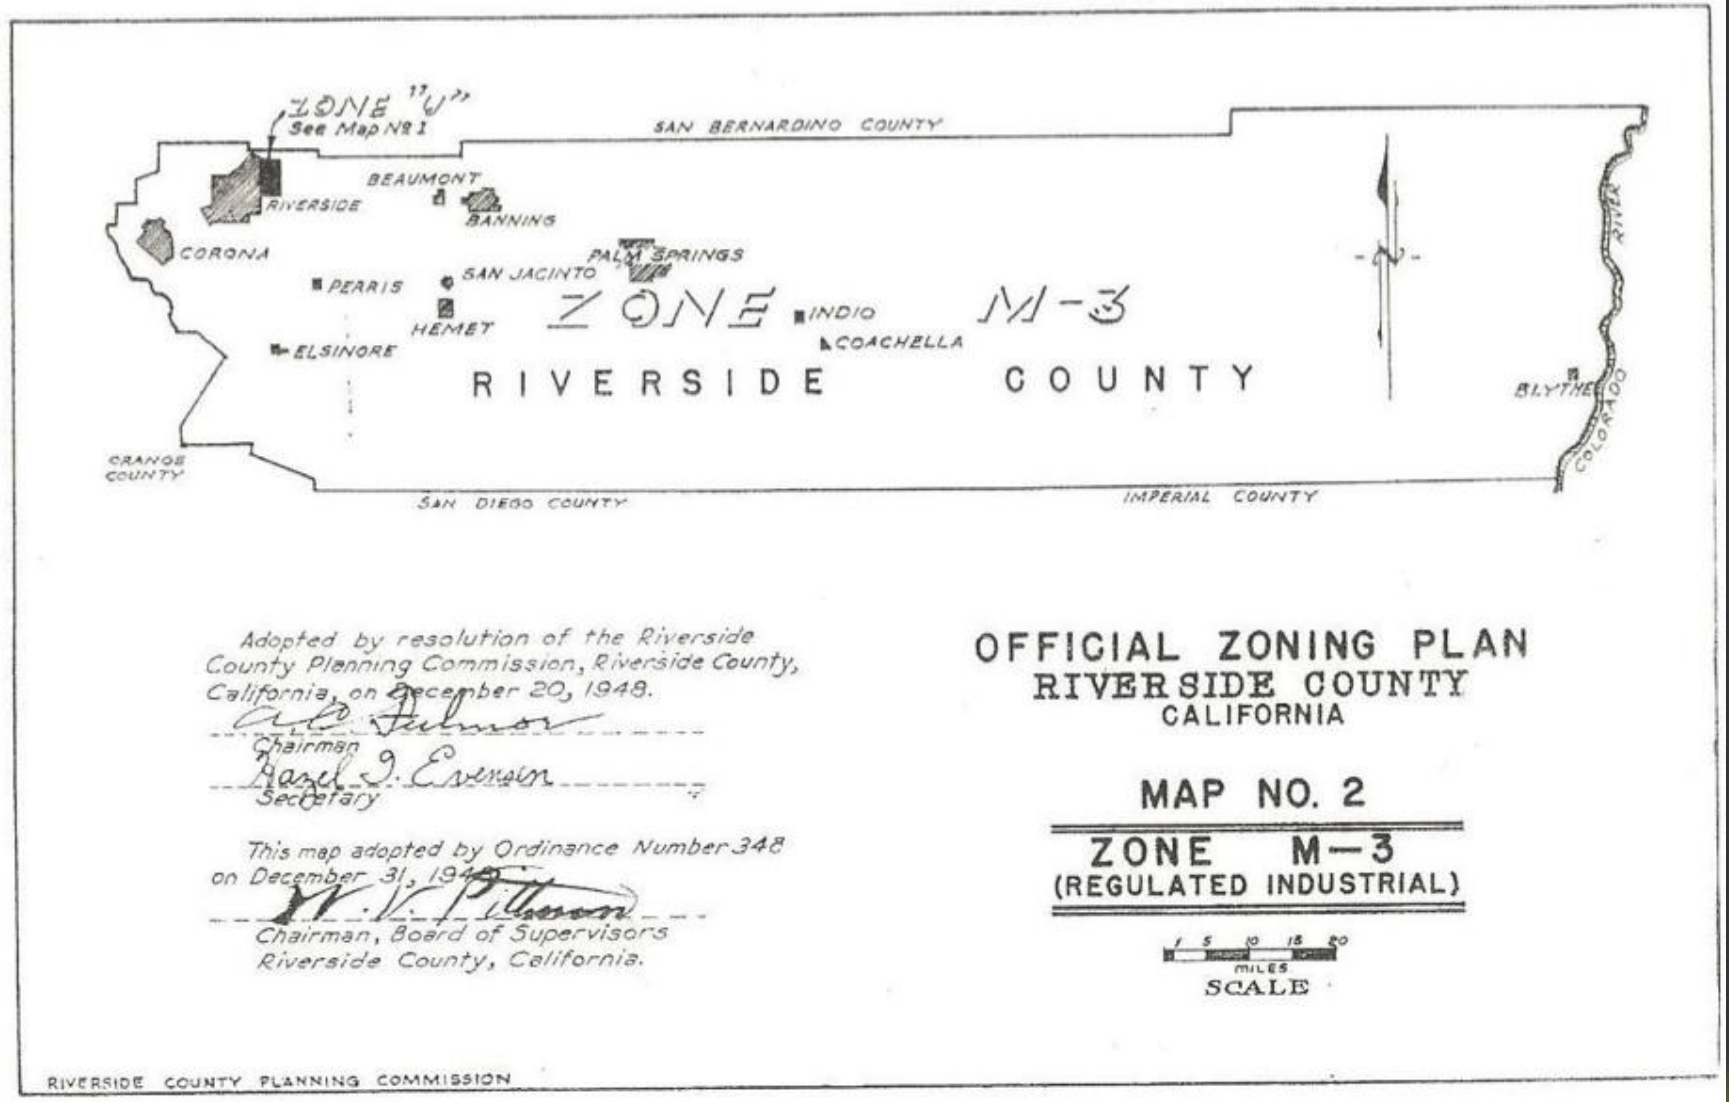 ZONE "U"
See Map No 1
SAN BERNARDINO COUNTY
BEAUMONT
RIVERSIDE
BANNING
RIVER
CORONA
PALM SPRINGS
SAN JACINTO
PERRIS
ZONE M-3
INDIO
HEMET
COACHELLA
ELSINORE
RIVERSIDE COUNTY
BLYTHE
COLORADO
ORANGE
COUNTY
SAN DIEGO COUNTY
IMPERIAL COUNTY
N
Adopted by resolution of the Riverside
County Planning Commission, Riverside County,
California, on December 20, 1948.
A.C. Fulmor
Chairman
Hazel I. Evensen
Secretary
This map adopted by Ordinance Number 348
on December 31, 1948
W. V. Pittman
Chairman, Board of Supervisors
Riverside County, California.
OFFICIAL ZONING PLAN
RIVERSIDE COUNTY
CALIFORNIA
MAP NO. 2
ZONE M-3
(REGULATED INDUSTRIAL)
1 5 10 15 20
MILES
SCALE
RIVERSIDE COUNTY PLANNING COMMISSION